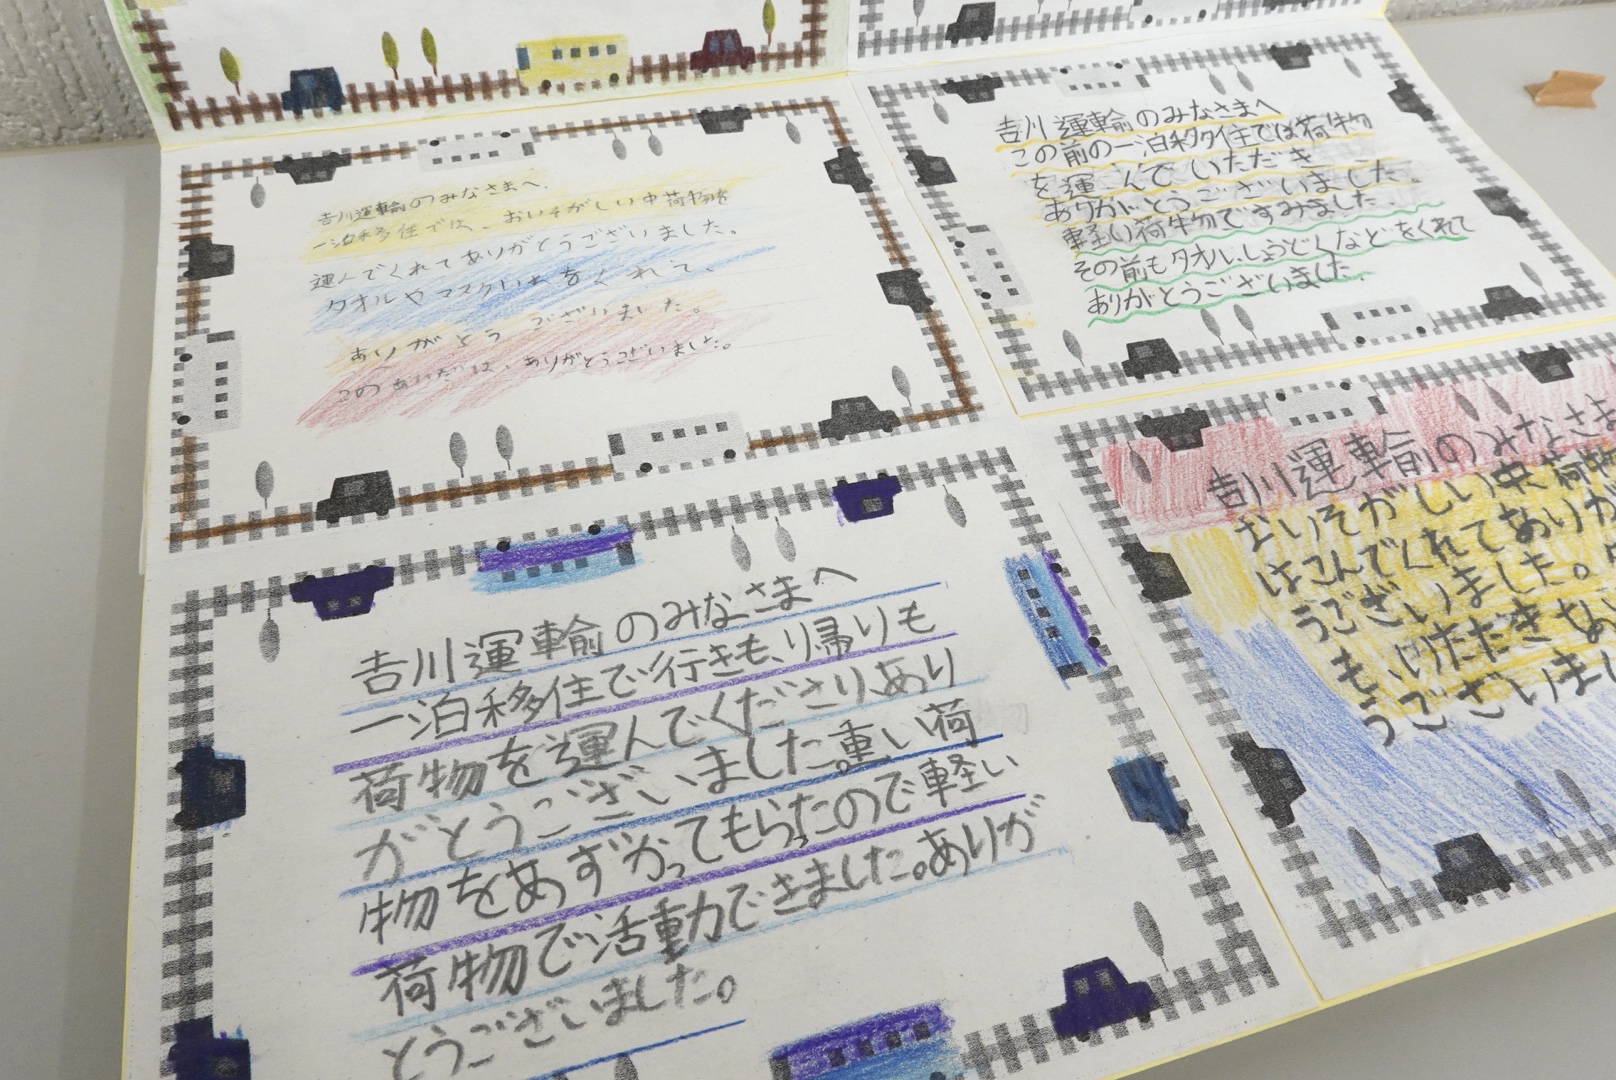 吉川運輸のみなさまへ
一泊移住では、おいそがしい中荷物を
運んでくれてありがとうございました。
タオルやマスクいれをくれて、
ありがとうございました。
このあいだは、ありがとうございました。
吉川運輸のみなさまへ
この前の一泊移住では荷物
を運んでいただき
ありがとうございました。
軽い荷物ですみました。
その前もタオル、しょうどくなどをくれて
ありがとうございました。
吉川運輸のみなさまへ
一泊移住で行きも、り帰りも
荷物を運んでくださり、あり
がとうございました。重い荷
物をあずかってもらったので軽い
荷物で活動できました。ありが
とうございました。
吉川運輸のみなさま
おいそがしい中荷物
はこんでくれてありが
うございました。
も、いただきあ
うございまし